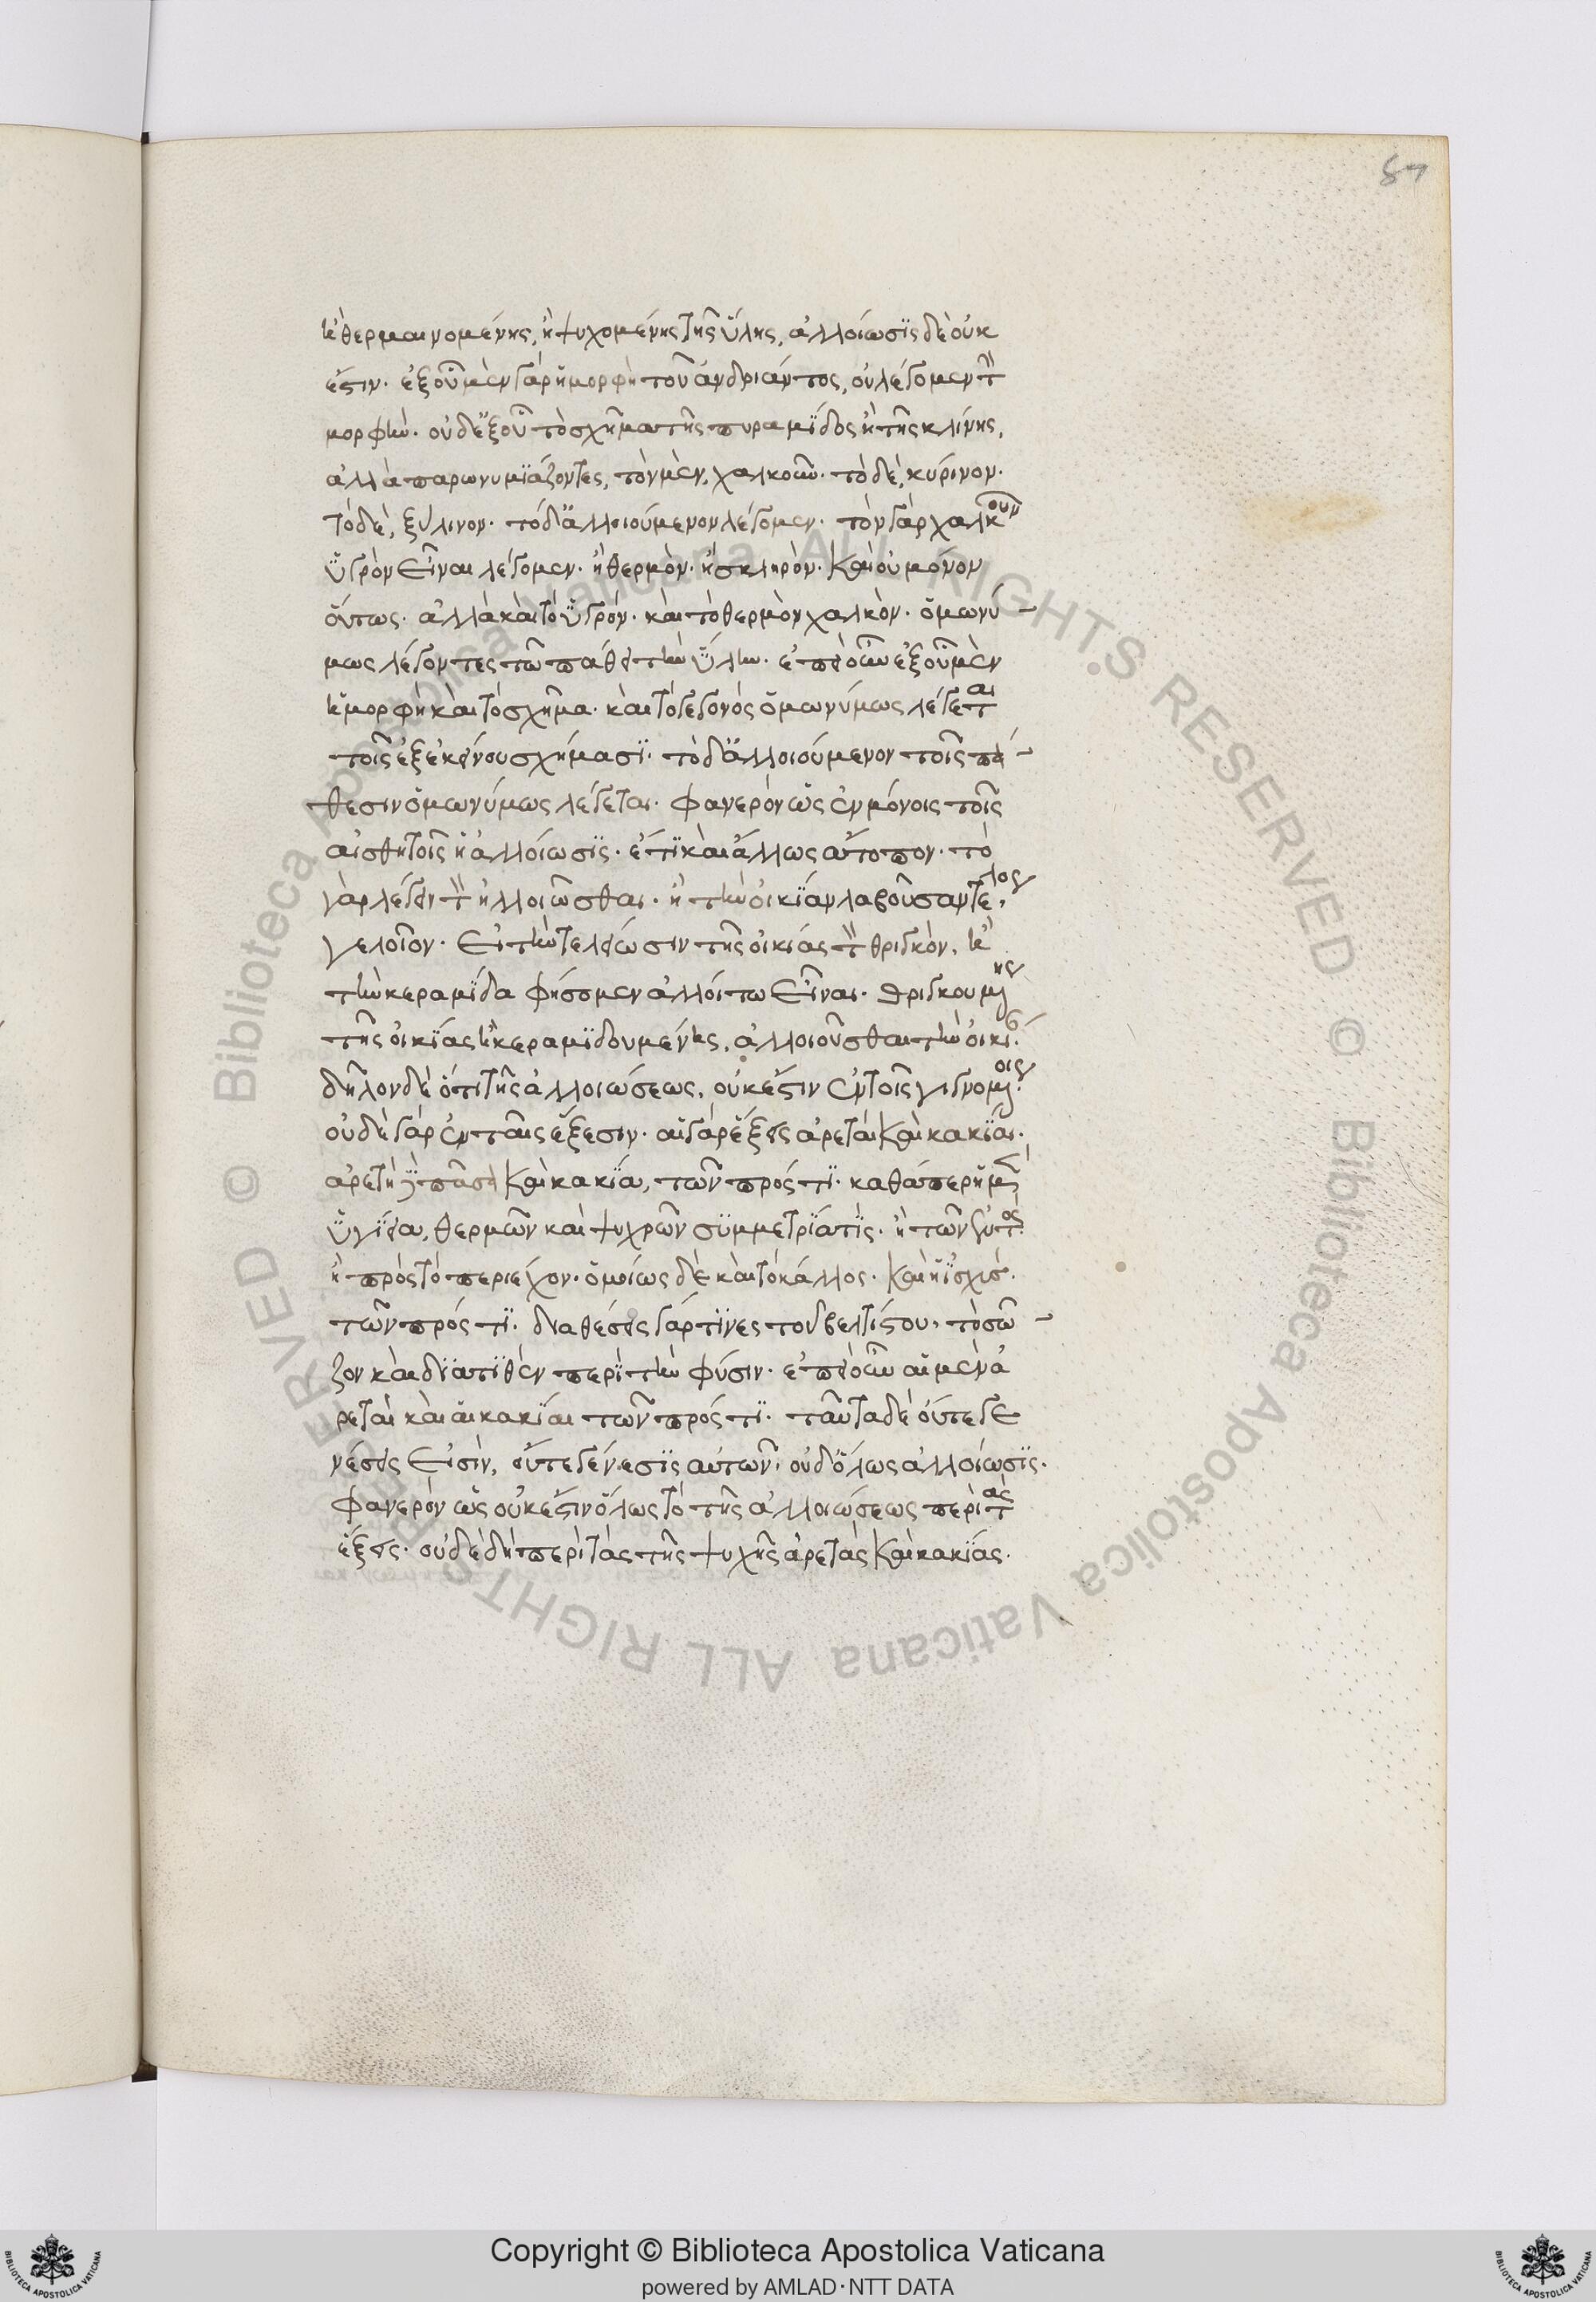 87
ἢ θερμαινομένης, ἢ ψυχομένης τῆς ὕλης, ἀλλοίωσϊς δὲ οὐκ
ἔστιν. ἐξ οὗ μὲν γὰρ ἡ μορφὴ τοῦ ἀνδριάντος, οὐ λέγομεν τὴν
μορφὴν. οὐδ' ἐξ οὗ τὸ σχῆμα τῆς πυραμΐδος ἢ τῆς κλίνης,
ἀλλὰ παρωνυμϊάζοντες, τὸν μὲν, χαλκοῦν. τὸ δὲ, κύρινον.
τὸ δὲ, ξύλινον. τὸ δ' ἀλλοιούμενον λέγομεν. τὸν γὰρ χαλκοῦν
ὑγρὸν εἶναι λέγομεν. ἢ θερμὸν. ἢ σκληρὸν. καὶ οὐ μόνον
οὕτως. ἀλλὰ καὶ τὸ ὑγρόν. καὶ τὸ θερμὸν χαλκὸν. ὁμωνύ
μως λέγοντες τῶ πάθει τὴν ὕλην. ἐπεὶ οὖν ἐξ οὗ μὲν
ἡ μορφὴ καὶ τὸ σχῆμα. καὶ τὸ γεγονὸς ὁμωνύμως λέγεται
τοῖς ἐξ ἐκείνου σχήμασϊ. τὸ δ' ἀλλοιούμενον τοῖς πά
θεσιν ὁμωνύμως λέγεται. φανερὸν ὡς ἐν μόνοις τοῖς
αἰσθητοῖς ἡ ἀλλοίωσϊς. ἔτϊ καὶ ἄλλως ἄτοπον. τὸ
γὰρ λέγειν τὸν ἠλλοιῶσθαι. ἢ τὴν οἰκϊαν λαβοῦσαν τέλος,
γελοῖον. εἰ τὴν τελείωσιν τῆς οἰκίας τὸν θριγκὸν, ἢ
τὴν κεραμΐδα φήσομεν ἀλλοίωσιν εἶναι. θριγκουμένης
τῆς οἰκΐας ἢ κεραμϊδουμένης, ἀλλοιοῦσθαι τὴν οἰκίαν.
δῆλον δὲ ὅτι τὸ τῆς ἀλλοιώσεως, οὐκ ἔστιν ἐν τοῖς γιγνομένοις.
οὐδὲ γὰρ ἐν ταῖς ἕξεσιν. αἱ γὰρ ἕξεις ἀρεταὶ καὶ κακΐαι.
ἀρετὴ δὲ πᾶσα καὶ κακΐα, τῶν πρός τϊ. καθάπερ ἡ μὲν
ὑγΐεια, θερμῶν καὶ ψυχρῶν συμμετρΐα τϊς. ἢ τῶν ἐντὸς
ἢ πρὸς τὸ περιέχον. ὁμοίως δὲ καὶ τὸ κάλλος. καὶ ἡ ἰσχὺσ.
τῶν πρός τϊ. διαθέσεις γάρ τϊνες τοῦ βελτίστου, τὸ σῶ
ζον καὶ διατϊθὲν περὶ τὴν φύσιν. ἐπεὶ οὖν αἱ μὲν ἀ
ρεταὶ καὶ αἱ κακΐαι τῶν πρός τϊ. ταῦτα δὲ οὔτε γε
νέσεις εἰσὶν, οὔτε γένεσϊς αὐτῶν, οὐδ' ὅλως ἀλλοίωσϊς.
φανερὸν ὡς οὐκ ἔστιν ὅλως τὸ τῆς ἀλλοιώσεως περὶ τὰς
ἕξεις. οὐδὲ δὴ περὶ τὰς τῆς ψυχῆς ἀρετὰς καὶ κακΐας.
Copyright © Biblioteca Apostolica Vaticana
powered by AMLAD·NTT DATA